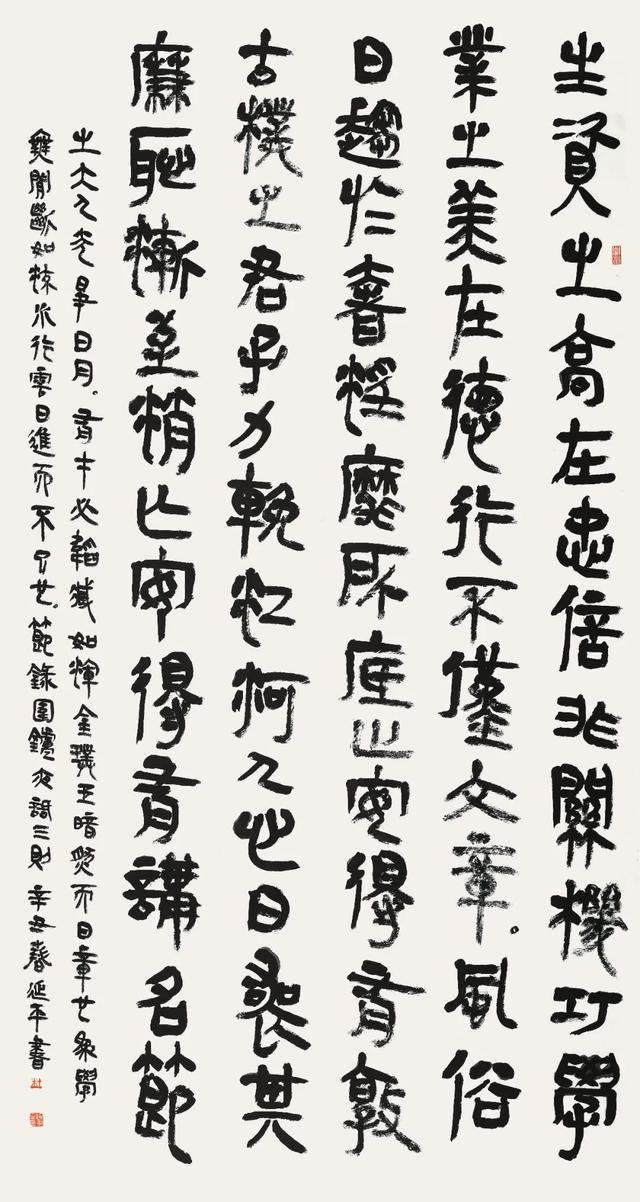 生資之高在忠信非關機巧學
業之美在德行不僅文章。風俗
日趨於奢淫靡所底止安得有敦
古樸之君子力輓江河人心日喪其
廉恥漸至消亡安得有講名節
之大人光爭日月。有才必韜藏如渾金璞玉暗然而日章也為學
無間斷如流水行雲日進而不已也。節錄圍鑪夜話三則辛丑春延平書